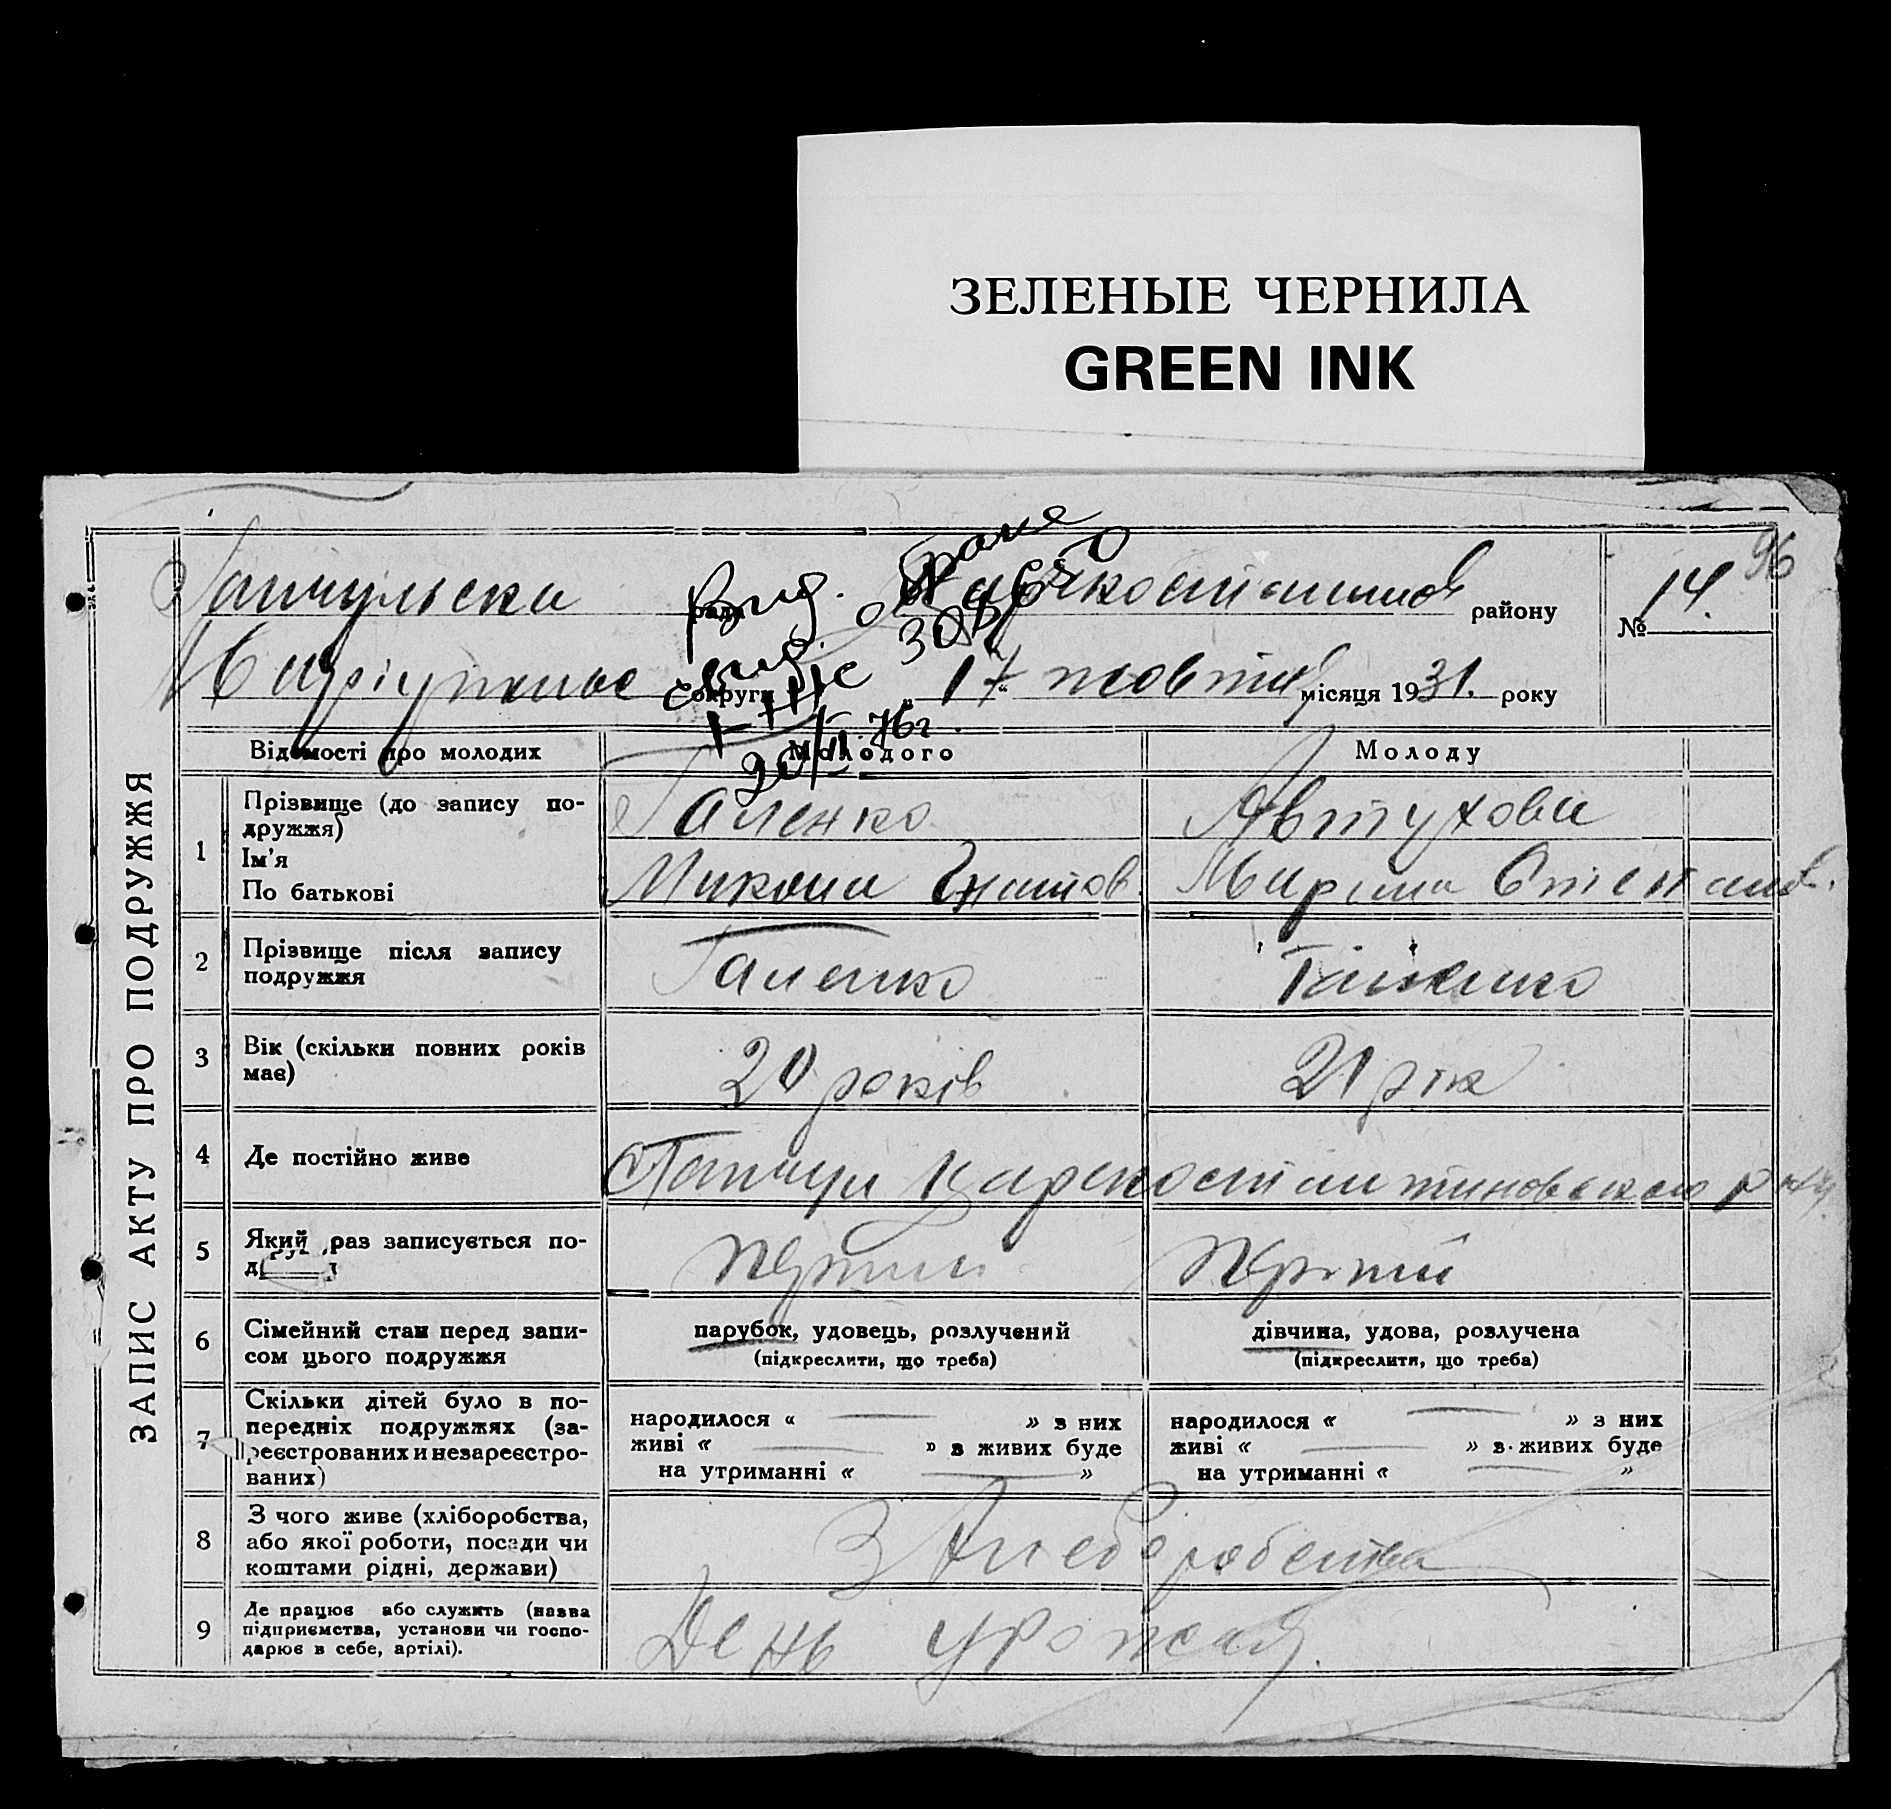 ЗЕЛЕНЫЕ ЧЕРНИЛА
GREEN INK
96
района
району
№ 14.
округи „17“ жовтня місяця 1931. року
20/II 76г.
ЗАПИС АКТУ ПРО ПОДРУЖЖЯ
Відомості про молодих
Молодого
Молоду
1
Прізвище (до запису по-
дружжя)
Ім'я
По батькові
Галенко
Автухова
Микола Гнатов.
Марина Степанов.
2
Прізвище після запису
подружжя
Галенко
Галенко
3
Вік (скільки повних років
має)
20 років
21 рік
4
Де постійно живе
5
Який раз записується по-
Перший
Перший
6
Сімейний стан перед запи-
сом цього подружжя
парубок, удовець, розлучений
(підкреслити, що треба)
дівчина, удова, розлучена
(підкреслити, що треба)
7
Скільки дітей було в по-
передніх подружжях (за-
реєстрованих и незареєстро-
ваних)
народилося « — » з них
живі « — » в живих буде
на утриманні « — »
народилося « — » з них
живі « — » в живих буде
на утриманні « — »
8
З чого живе (хліборобства,
або якої роботи, посади чи
коштами рідні, держави)
З хлеборобства
9
Де працює або служить (назва
підприємства, установи чи госпо-
дарює в себе, артілі).
День урожая.